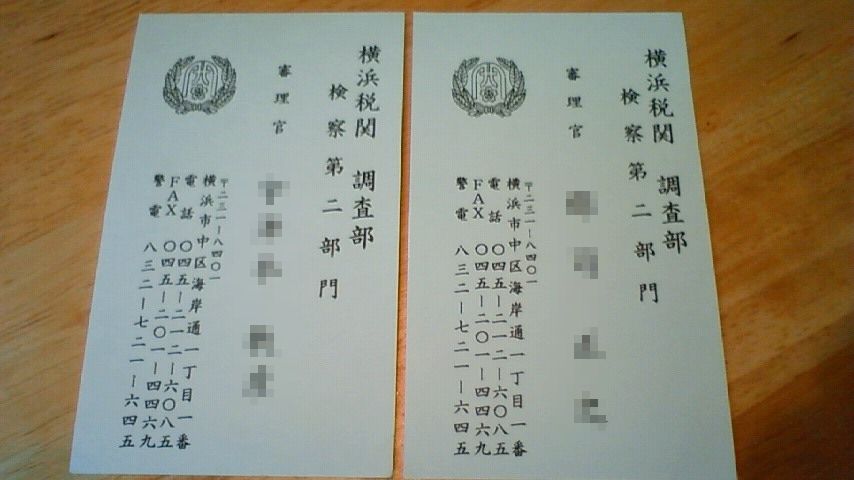 横浜税関 調査部
検察第二部門
審理官
〒二三一ー八四〇一
横浜市中区海岸通一丁目一番
電話 〇四五ー二一二ー六〇八五
FAX 〇四五ー二〇一ー四四六九
警電 八三二ー七二一ー六四五
横浜税関 調査部
検察第二部門
審理官
〒二三一ー八四〇一
横浜市中区海岸通一丁目一番
電話 〇四五ー二一二ー六〇八五
FAX 〇四五ー二〇一ー四四六九
警電 八三二ー七二一ー六四五